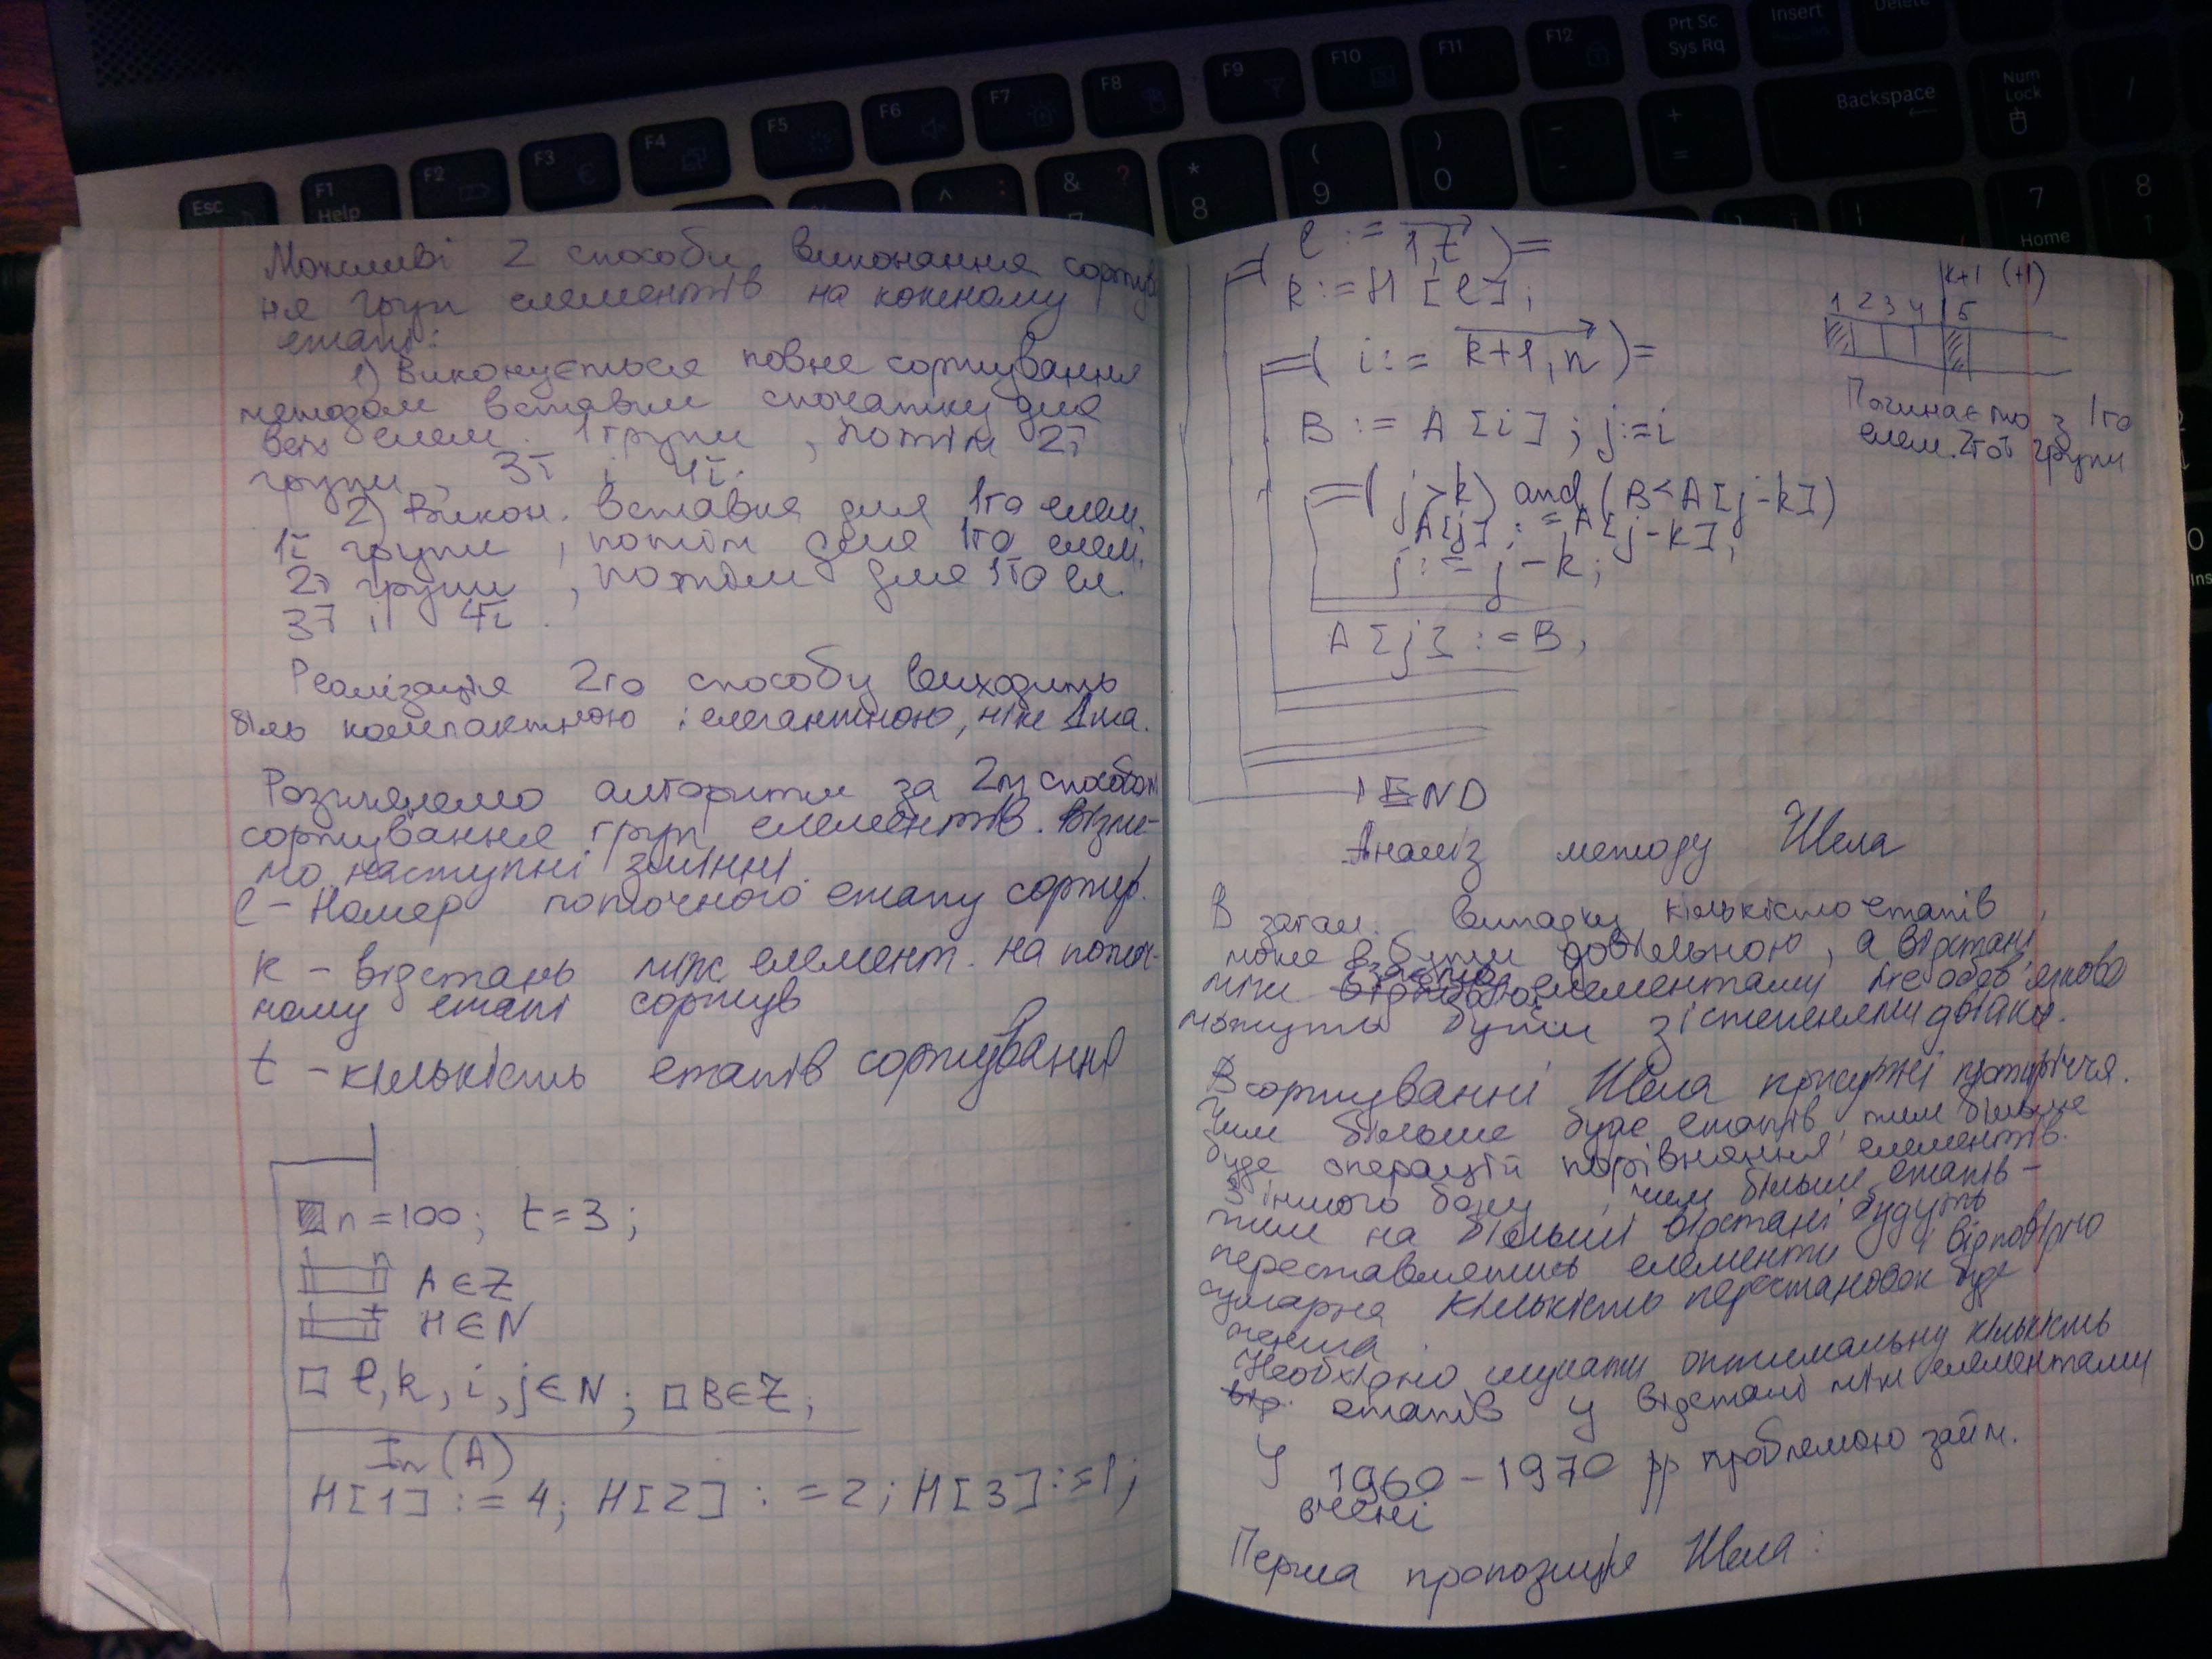 Esc
F1
Help
F2
F3
F4
F5
F6
F7
F8
F9
F10
F11
F12
Prt Sc
Sys Rq
Insert
Delete
Backspace
Num
Lock
&
?
*
8
(
9
)
0
7
Home
8
Можливі 2 способи виконання сортув
ня груп елементів на кожному
етапі:
1) Виконується повне сортування
методом вставки спочатку для
всіх елем. 1 групи, потім 2ї
групи, 3ї і 4ї.
2) Викон. вставка для 1го елем.
1ї групи, потім для 1го елем.
2ї групи, потім для 1го ел.
3ї і 4ї.
Реалізація 2го способу виходить
біль компактною і елегантною, ніж 1ша.
Розглянемо алгоритм за 2м способом
сортування груп елементів. Візме-
мо наступні змінні.
l - Номер поточного етапу сортув.
k - відстань між елемент. на поточ-
ному етапі сортув
t - кількість етапів сортування
n=100; t=3;
1 n
A∈Z
1 t
H∈N
l, k, i, j∈N; B∈Z;
In(A)
H[1]:=4; H[2]:=2; H[3]:=1;
( l:= 1,t )=
k:=H[l];
( i:= k+1, n )=
B:=A[i]; j:=i
( j>k) and (B<A[j-k])
A[j]:=A[j-k];
j:=j-k;
A[j]:=B;
END
k+1 (+1)
1 2 3 4 5
Починаємо з 1го
елем. 2гої групи
Аналіз методу Шела
В загал. випадку кількістю етапів
може бути довільною, а відстані
між елементами не обов'язково
можуть бути зі степенями двійки.
В сортуванні Шела присутні протиріччя.
Чим більше буде етапів, тим більше
буде операцій порівняння елементів.
З іншого боку, чим більше етапів -
тим на більші відстані будуть
переставлятись елементи і відповідно
сумарна кількість перестановок буде
менша.
Необхідно шукати оптимальну кількість
етапів у відстані між елементами
У 1960-1970 рр проблемою займ.
вчені
Перша пропозиція Шела: